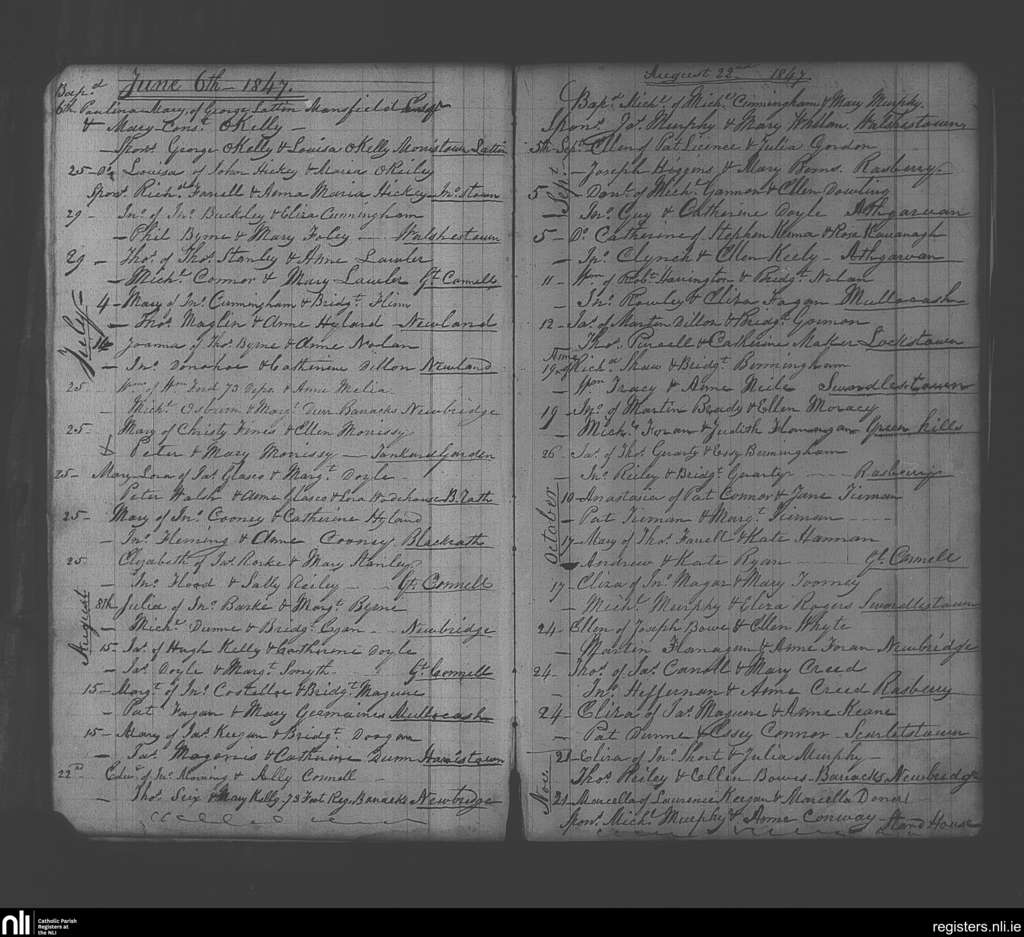 June 6th - 1847.
Bap.d
6th Paulina Mary, of George Lattin Mansfield Esqr
& Mary Const. OKelly -
Spons. George OKelly & Louisa OKelly Morristown Lattin
25 - Do. Louisa of John Hickey & Maria OReiley
Spons. Richd. Farrell & Anna Maria Hickey Jns. town
29 - Jno. of Jno. Buckley & Eliza Cunningham
- Phil Byrne & Mary Foley - Walshestown
29 - Thos. of Thos. Stanley & Anne Lawler
- Michl. Connor & Mary Lawler Gt. Connells
July
4 - Mary of Jno. Cunningham & Bridgt. Flinn
- Thos. Maglin & Anne Hyland - Newland
Joanna of Thos. Byrne & Anne Nolan
- Jno. Donohoe & Catherine Dillon Newland
25 Wm. of Wm. Ford 73 Depo. & Anne Melia
Michl. Osburn & Margt. Barracks Newbridge
25 - Mary of Christy & Ellen Morrissy
Peter & Mary Morrissy - Tankardgarden
25 - Mary of Jas. Glasco & Margt. Doyle -
Peter Walsh & Anne Glasco B. Rath
25 - Mary of Jno. Cooney & Catherine Hyland
- Jno. Fleming & Anne Cooney Blackrath
25 Elizabeth of Jas. Rorke & Mary Hanley
- Jno. Flood & Sally Reiley - Gt. Connell
August
8th Julia of Jno. Burke & Margt. Byrne
- Michl. Dunne & Bridgt. - Newbridge
15 - Jas. of Hugh Kelly & Catherine Doyle
- Jas. Doyle & Margt. Smyth - Gt. Connell
15 - Margt. of Jno. Costelloe & Bridgt. Maguire
- Pat Fagan & Mary Germaines Mullacash
15 - Mary of Jas. Keegan & Bridgt. Doogan
- Jas. & Catherine Dunn
22nd Edwd. of Jno. & Ally Connell -
- Thos. & Mary Kelly, 73 Foot Regt. Barracks Newbridge
August 22nd 1847.
Bapt. Michl. of Michl. Cunningham & Mary Murphy
Spons. Jas. Murphy & Mary Whelan. Walshestown
5th Sept. Ellen of Pat & Julia Gordon
Sept.
- Joseph Higgins & Mary Rasberry
5 - Danl. of Michl. Gannon & Ellen Dowling
- Jno. Guy & Catherine Doyle Athgarvan
5 - Do. Catherine of Stephen & Rose Kavanagh
- Jno. Clynch & Ellen Keely - Athgarvan
11 - Wm. of Robt. Harington & Bridgt. Nolan
- Jno. Rowley & Eliza Fagan Mullacash
12 - Jas. of Martin Dillon & Bridgt. Gannon
- Thos. Purcell & Catherine Maher Lockstown
19 Richd. Shaw & Bridgt. Birmingham
- Wm. Tracy & Anne Neile Swordlestown
19 - Jno. of Martin Brady & Ellen
- Michl. Foran & Judith Flannagan Green hills
26 - Jas. of Thos. & Essy Bermingham
- Jno. Reiley & Bridgt. Rasberry
October
10 - Anastasia of Pat Connor & Jane Tiernan
- Pat Tiernan & Margt. Tiernan - - -
17 - Mary of Thos. Farrell & Kate Hannan
- Andrew & Kate Ryan - Gt. Connell
17 - Eliza of Jno. & Mary Toomey
- Michl. Murphy & Eliza Rogers Swordlestown
24 - Ellen of Joseph Bowe & Ellen Whyte
- Martin Flanagan & Anne Foran Newbridge
24 - Thos. of Jas. Carroll & Mary Creed
- Jno. Heffernan & Anne Creed Rasberry
24 - Eliza of Jas. Maguire & Anne Keane
- Pat Dunne & Essy Connor - Scarletstown
Nov.
21 - Eliza of Jno. Short & Julia Murphy -
- Thos. Reiley & Ellen Bowes - Barracks Newbridge
21 - Marcella of Laurence Keegan & Marcella
Spons. Michl. Murphy & Anne Conway Stand House
nli
Catholic Parish
Registers at
the NLI
registers.nli.ie